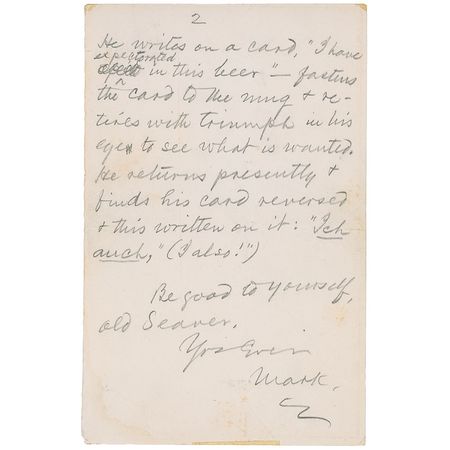 2
He writes on a card, "I have
expectorated
in this beer" — fastens
the card to the mug & re-
tires with triumph in his
eye to see what is wanted.
He returns presently &
finds his card reversed
& this written on it: "Ich
auch," (I also!")
Be good to yourself,
old Seaver.
Yrs Ever
Mark.